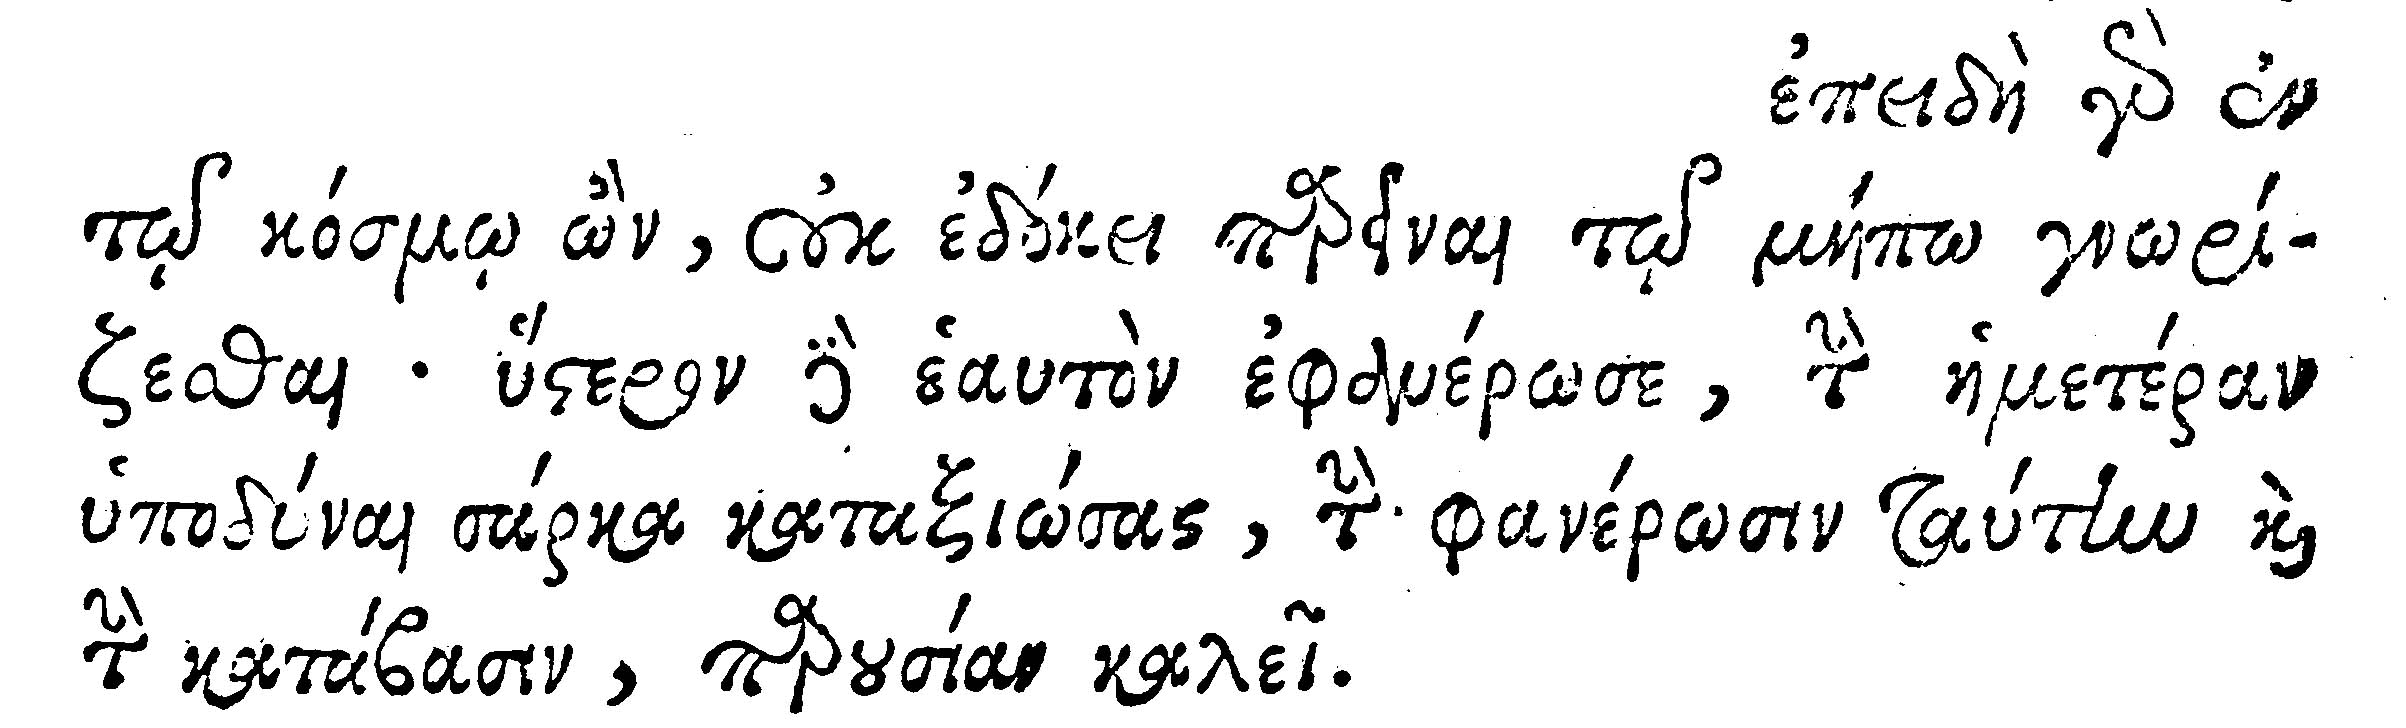 ἐπειδὴ γὰρ ἐν
τῷ κόσμῳ ὢν, οὐκ ἐδόκει παρεῖναι τῷ μήπω γνωρί-
ζεσθαι · ὕστερον δὲ ἑαυτὸν ἐφανέρωσε, τὴν ἡμετέραν
ὑποδύναι σάρκα καταξιώσας, τὴν φανέρωσιν ταύτην καὶ
τὴν κατάβασιν, παρουσίαν καλεῖ.